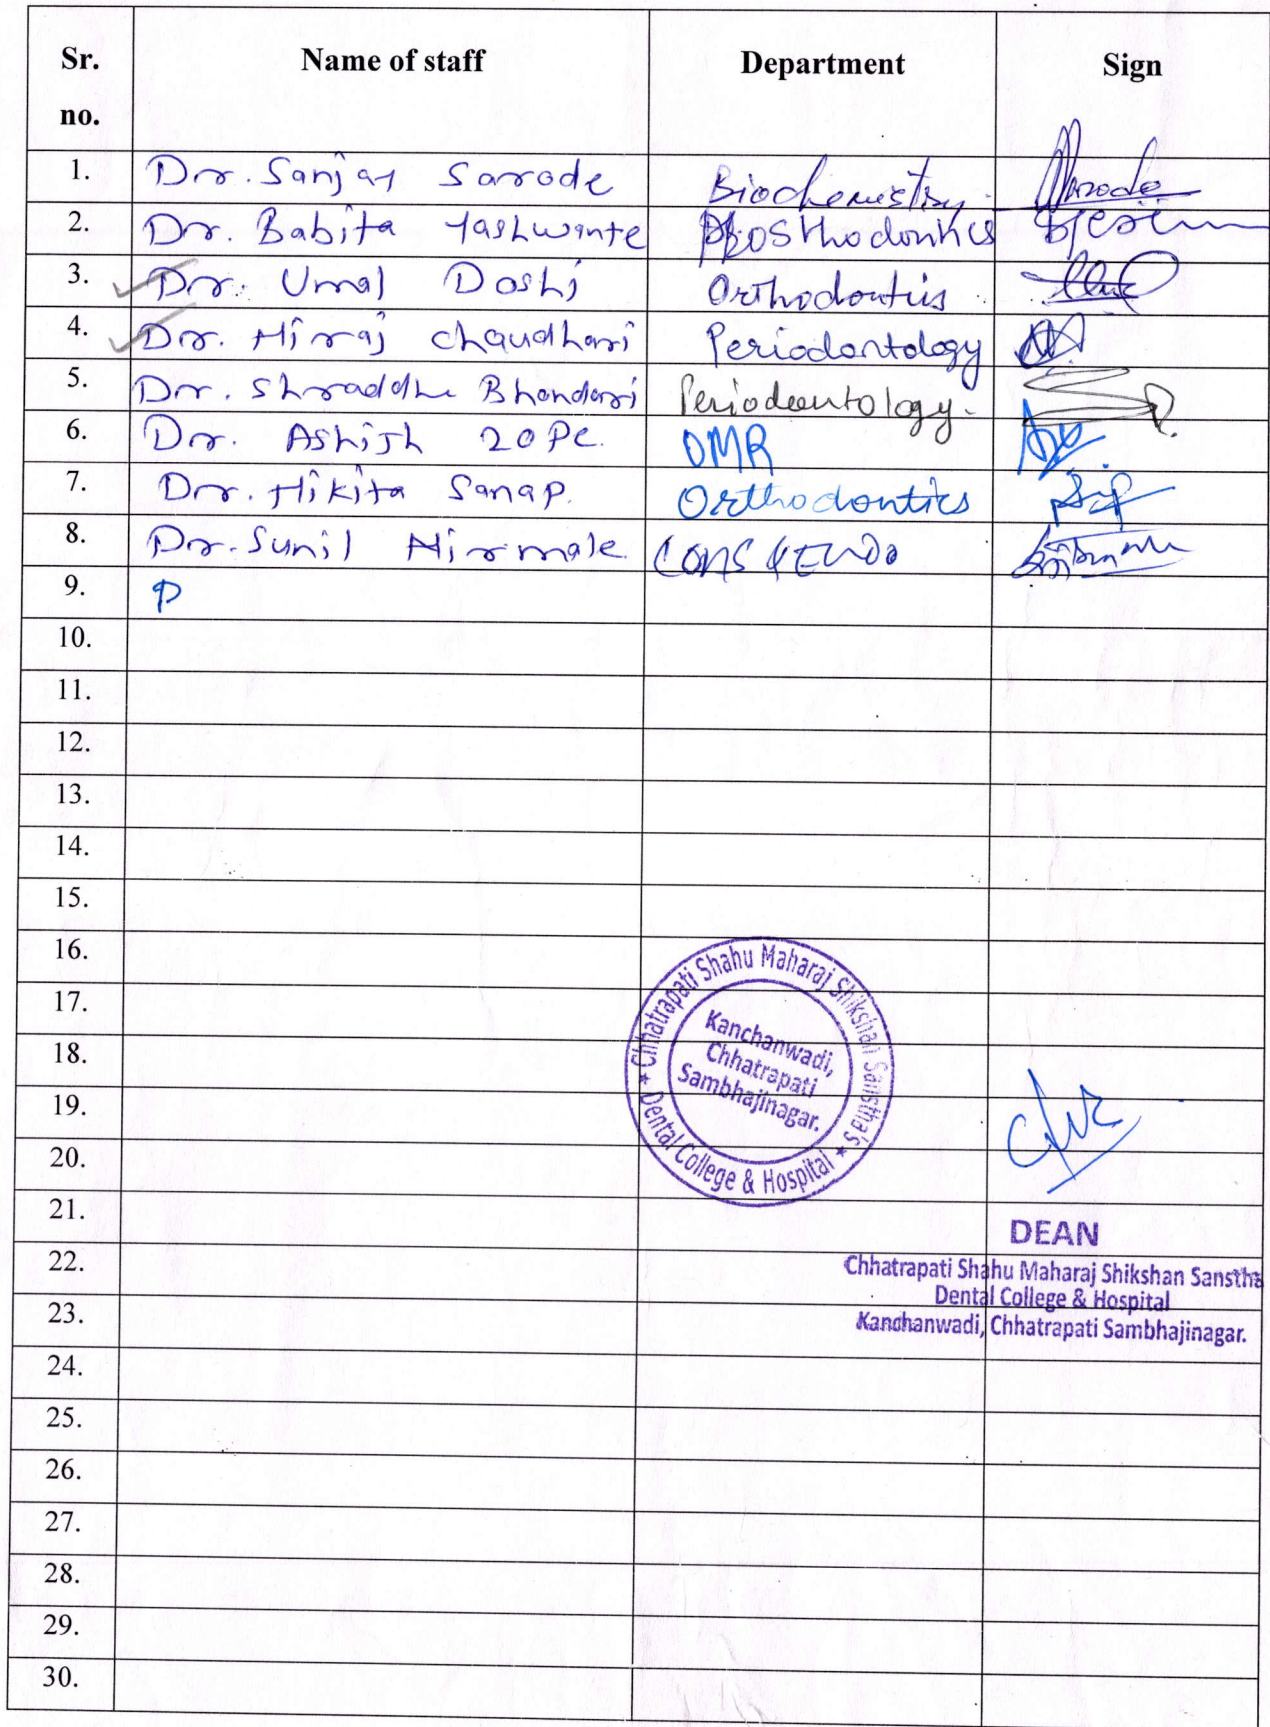 Sr. no. Name of staff Department Sign
1. Dr. Sanjay Sarode Biochemistry. Sarode
2. Dr. Babita Yashwante Prosthodontics
3. Dr. Umal Doshi Orthodontics
4. Dr. Niraj Chaudhari Periodontology
5. Dr. Shraddha Bhandari Periodontology.
6. Dr. Ashish Zope. OMR
7. Dr. Nikita Sanap. Orthodontics
8. Dr. Sunil Nirmale. CONS & ENDO
9. D
10.
11.
12.
13.
14.
15.
16.
17.
18.
19.
20.
21.
22.
23.
24.
25.
26.
27.
28.
29.
30.
Chhatrapati Shahu Maharaj Shikshan Sanstha's
★ Dental College & Hospital ★
Kanchanwadi,
Chhatrapati
Sambhajinagar.
DEAN
Chhatrapati Shahu Maharaj Shikshan Sanstha
Dental College & Hospital
Kanchanwadi, Chhatrapati Sambhajinagar.